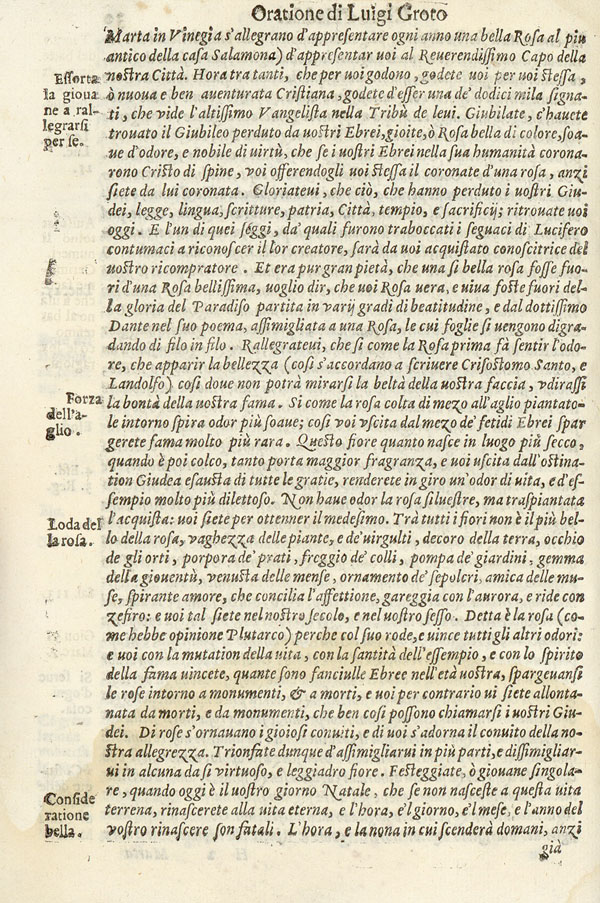 Oratione di Luigi Groto
Marta in Vinegia s'allegrano d'appresentare ogni anno una bella Rosa al piu
antico della casa Salamona) d'appresentar uoi al Reuerendissimo Capo della
nostra Città. Hora tra tanti, che per uoi godono, godete uoi per uoi stessa,
ò nuoua e ben auenturata Cristiana, godete d'esser una de' dodici mila signa-
ti, che vide l'altissimo Vangelista nella Tribù de leui. Giubilate, c'hauete
trouato il Giubileo perduto da uostri Ebrei, gioite, ò Rosa bella di colore, soa-
ue d'odore, e nobile di virtù, che se i uostri Ebrei nella sua humanità corona-
rono Cristo di spine, voi offerendogli uoi stessa il coronate d'una rosa, anzi
siete da lui coronata. Gloriateui, che ciò, che hanno perduto i uostri Giu-
dei, legge, lingua, scritture, patria, Città, tempio, e sacrificij; ritrouate uoi
oggi. E l'un di quei seggi, da' quali furono traboccati i seguaci di Lucifero
contumaci a riconoscer il lor creatore, sarà da uoi acquistato conoscitrice del
uostro ricompratore. Et era pur gran pietà, che una si bella rosa fosse fuo-
ri d'una Rosa bellissima, uoglio dir, che uoi Rosa uera, e uiua foste fuori del-
la gloria del Paradiso partita in varij gradi di beatitudine, e dal dottissimo
Dante nel suo poema, assimigliata a una Rosa, le cui foglie si uengono digra-
dando di filo in filo. Rallegrateui, che si come la Rosa prima fà sentir l'odo-
re, che apparir la bellezza (così s'accordano a scriuere Crisostomo Santo, e
Landolfo) così doue non potrà mirarsi la beltà della uostra faccia, vdirassi
la bontà della uostra fama. Si come la rosa colta di mezo all'aglio piantato-
le intorno spira odor più soaue; così voi vscita dal mezo de' fetidi Ebrei spar
gerete fama molto più rara. Questo fiore quanto nasce in luogo più secco,
quando è poi colto, tanto porta maggior fragranza, e uoi uscita dall'ostina-
tion Giudea esausta di tutte le gratie, renderete in giro un'odor di uita, e d'es-
sempio molto più dilettoso. Non haue odor la rosa siluestre, ma traspiantata
l'acquista: uoi siete per ottenner il medesimo. Trà tutti i fiori non è il più bel-
lo della rosa, vaghezza delle piante, e de' uirgulti, decoro della terra, occhio
de gli orti, porpora de' prati, freggio de' colli, pompa de' giardini, gemma
della giouentù, venusta delle mense, ornamento de' sepolcri, amica delle mu-
se, spirante amore, che concilia l'affettione, gareggia con l'aurora, e ride con
zefiro: e uoi tal siete nel nostro secolo, e nel uostro sesso. Detta è la rosa (co-
me hebbe opinione Plutarco) perche col suo rode, e uince tutti gli altri odori:
e uoi con la mutation della uita, con la santità dell'essempio, e con lo spirito
della fama uincete, quante sono fanciulle Ebree nell'età uostra, spargeuansi
le rose intorno a monumenti, & a morti, e uoi per contrario ui siete allonta-
nata da morti, e da monumenti, che ben così possono chiamarsi i uostri Giu-
dei. Di rose s'ornauano i gioiosi conuiti, e di uoi s'adorna il conuito della no-
stra allegrezza. Trionfate dunque d'assimigliarui in più parti, e dissimigliar-
ui in alcuna da si virtuoso, e leggiadro fiore. Festeggiate, ò giouane singola-
re, quando oggi è il uostro giorno Natale, che se non nasceste a questa uita
terrena, rinascerete alla uita eterna, e l'hora, e'l giorno, e'l mese, e l'anno del
vostro rinascere son fatali. L'hora, e la nona in cui scenderà domani, anzi
già
Efforta
la gioua
ne a ral-
legrarsi
per se.
Forza
dell'a-
glio.
Loda del
la rosa.
Conside
ratione
bella.